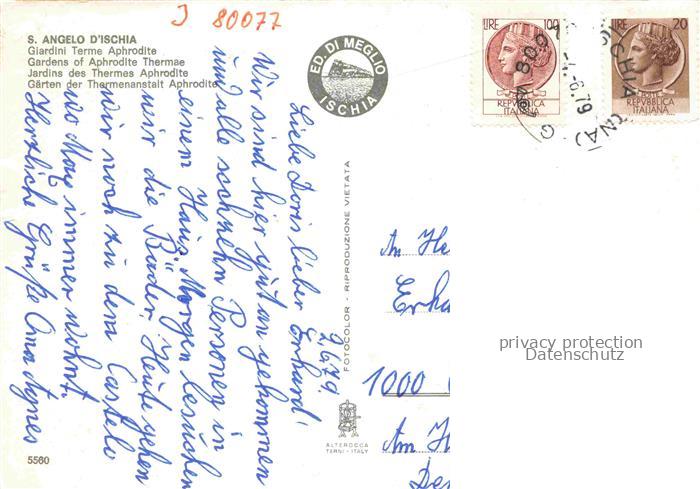 J 80077
S. ANGELO D'ISCHIA
Giardini Terme Aphrodite
Gardens of Aphrodite Thermae
Jardins des Thermes Aphrodite
Gärten der Thermenanstalt Aphrodite
ED. DI MEGLIO
ISCHIA
LIRE 100
REPVBBLICA
ITALIANA
LIRE 20
REPVBBLICA
ITALIANA
ISCHIA (NA)
-6-79
2.6.79.
Liebe Doris lieber Erhard!
Wir sind hier gut angekommen
und alle sechzehn Personen in
einem Haus. Morgen besuchen
wir die Bäder. Heute gehen
wir noch zu dem Castello
wo immer wohnt.
Herzliche Grüße Oma Agnes
FOTOCOLOR - RIPRODUZIONE VIETATA
An He
Erha
1000
Am H
De
privacy protection
Datenschutz
ALTEROCCA
TERNI - ITALY
5560